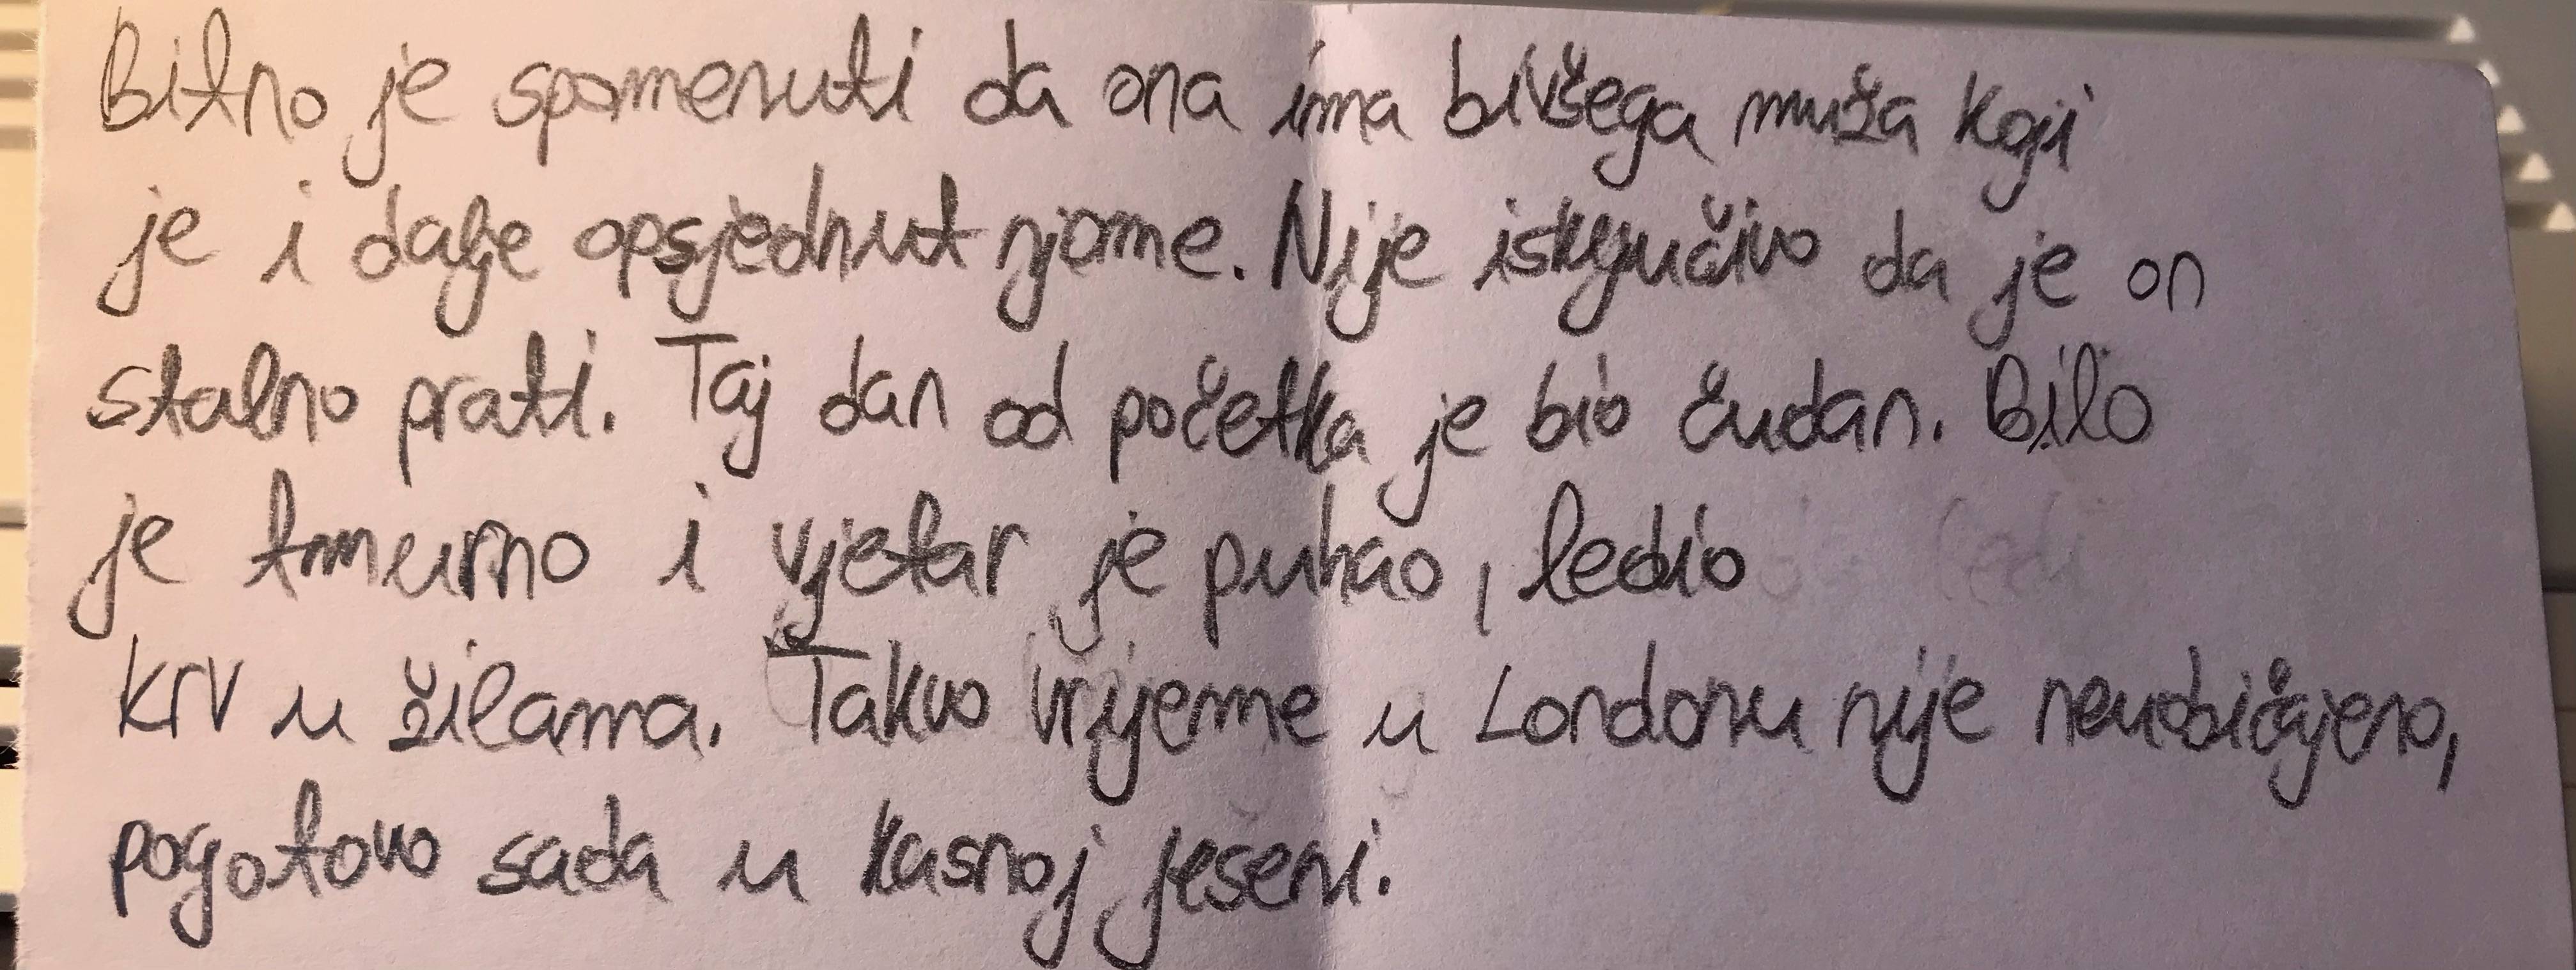 Bitno je spomenuti da ona ima bivšega muža koji
je i dalje opsjednut njome. Nije isključivo da je on
stalno prati. Taj dan od početka je bio čudan. Bilo
je tmurno i vjetar je puhao, ledio
krv u žilama. Takvo vrijeme u Londonu nije neuobičajeno,
pogotovo sada u kasnoj jeseni.